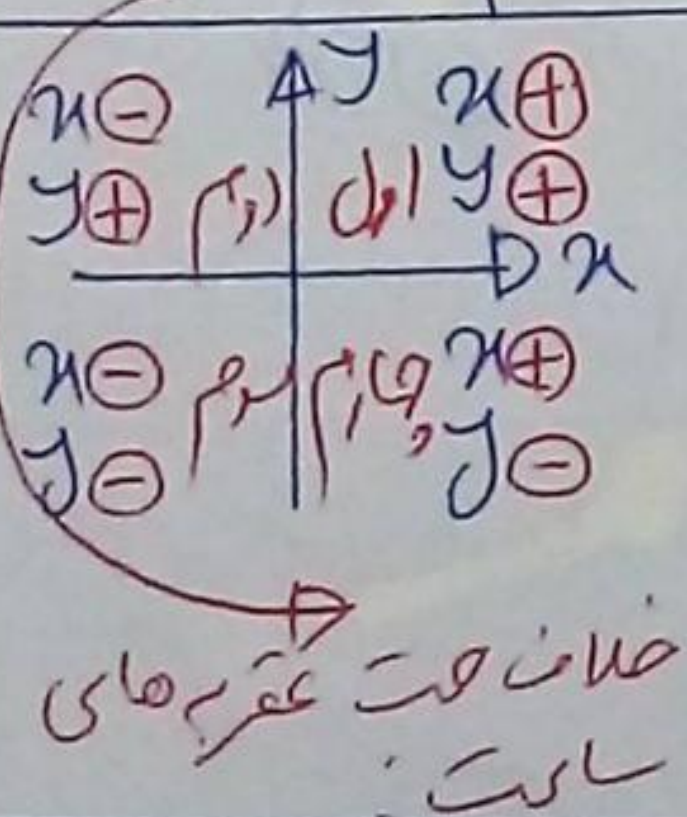 y
x ⊖ x ⊕
y ⊕ دوم اول y ⊕
x
x ⊖ سوم چهارم x ⊕
y ⊖ y ⊖
خلاف جهت عقربه های
ساعت.